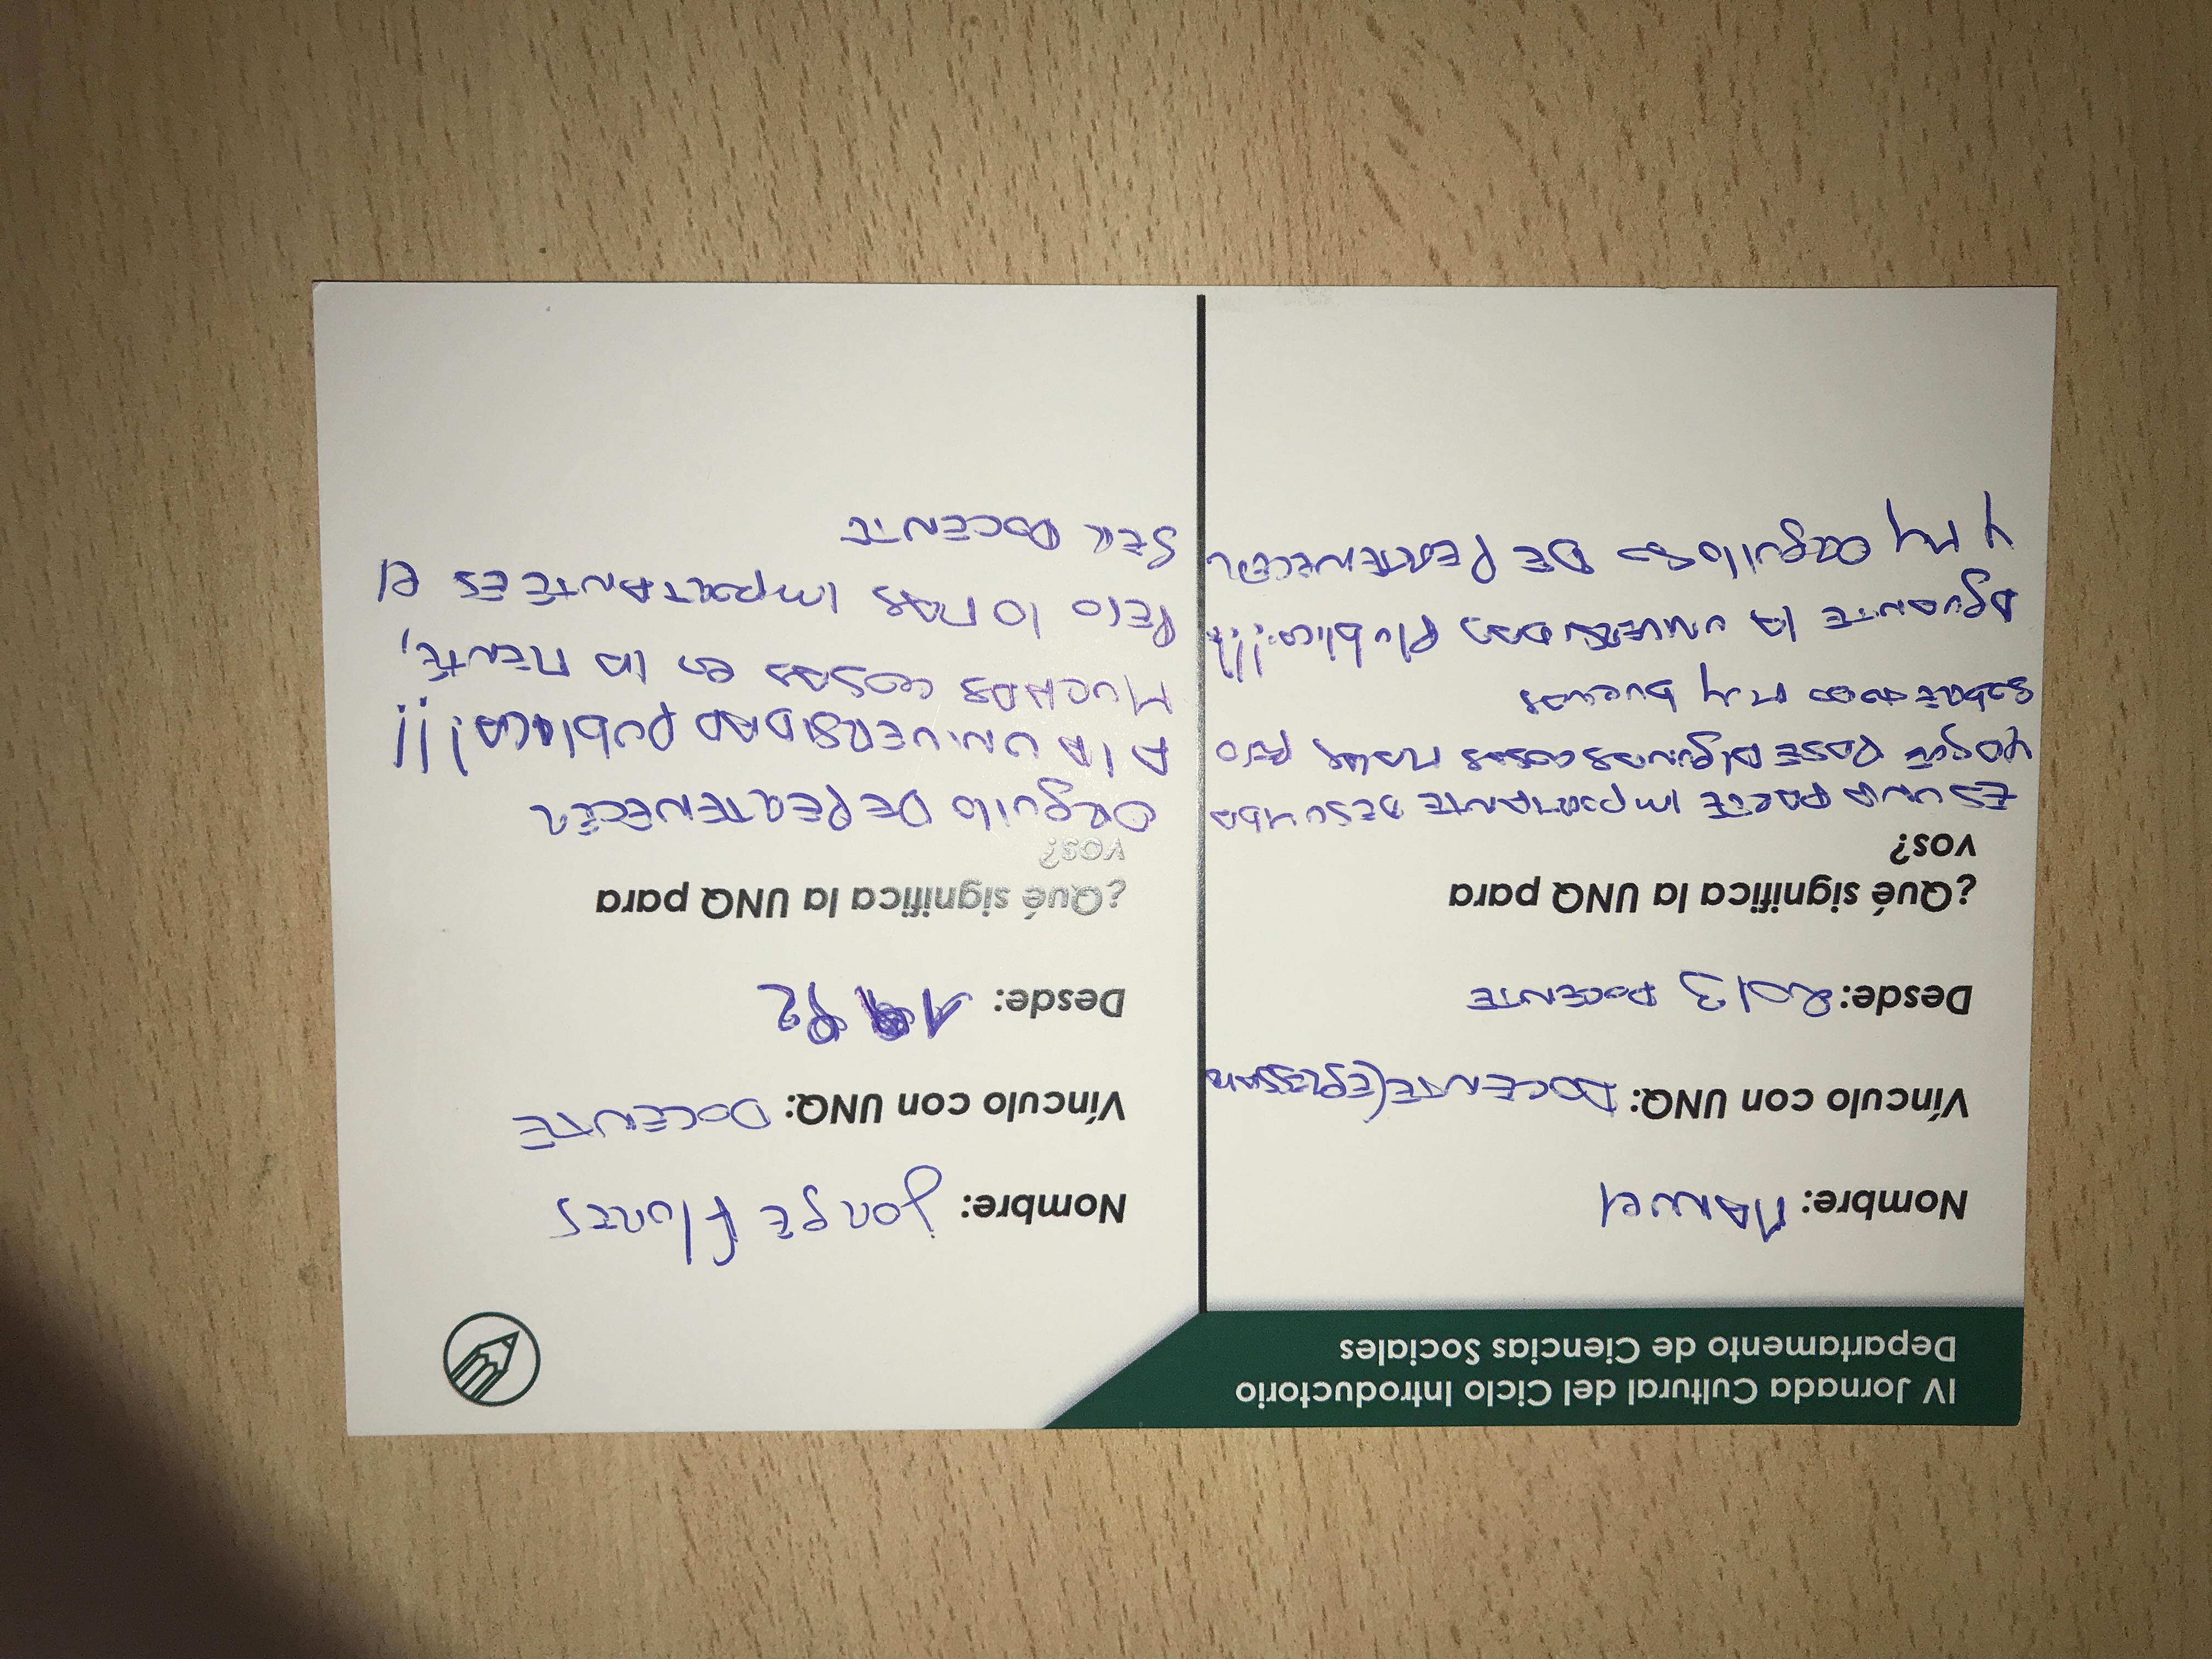 IV Jornada Cultural del Ciclo Introductorio
Departamento de Ciencias Sociales
Nombre: MANUel
Vínculo con UNQ: DOCENTE (EgRESADO
Desde: 2013 DOCENTE
¿Qué significa la UNQ para
vos?
ES UNA PARTE IMPORTANTE DE SU VIDA
PASE AlgUNAS COSAS MALAS PERO
SOBRE TODO MUY bUENAS
AgUANTE lA UNIVERSIDAD Pública!!!
Y MUY ORgUllOSO DE PERTENECER
Nombre: JORgE FlORES
Vínculo con UNQ: DOCENTE
Desde:
¿Qué significa la UNQ para
vos?
ORgUllO DE PERTENECER
A lA UNIVERSIDAD PUblICA!!!
MUCHAS COSAS EN lA MENTE,
PERO lO MAS IMPORTANTE ES El
SER DOCENTE